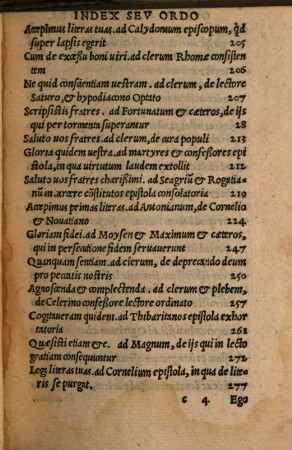 INDEX SEV ORDO
Accepimus literas tuas. ad Calydonium episcopum, qd
super lapsis egerit 205
Cum de excessu boni viri. ad clerum Rhomæ consisten
tem 206
Ne quid conscientiam uestram. ad clerum, de lectore
Saturo, & hypodiacono Optato 207
Scripsistis fratres. ad Fortunatum & cæteros, de ijs
qui per tormenta superantur 28
Saluto uos fratres. ad clerum, de cura populi 213
Gloria quidem uestra. ad martyres & confessores epi
stola, in qua uirtutum laudem extollit 211
Saluto uos fratres charissimi. ad Seagriũ & Rogatia-
nũ in carcere cõstitutos epistola consolatoria 219
Accepimus primas literas. ad Antonianum, de Cornelio
& Nouatiano 224.
Gloriam fidei. ad Moysen & Maximum & cæteros,
qui in persecutione fidem seruauerunt 247
Quanquam sentiam. ad clerum, de deprecando deum
pro peccatis nostris 250
Agnoscenda & complectenda. ad clerum & plebem,
de Celerino confessore lectore ordinato 257
Cogitaueram quidem. ad Thibaritanos epistola exhor
tatoria 261
Quæsisti etiam &c. ad Magnum, de ijs qui in lecto
gratiam consequuntur 272
Legi literas tuas. ad Cornelium epistola, in qua de lite-
ris se purgat. 277
c 4. Ego